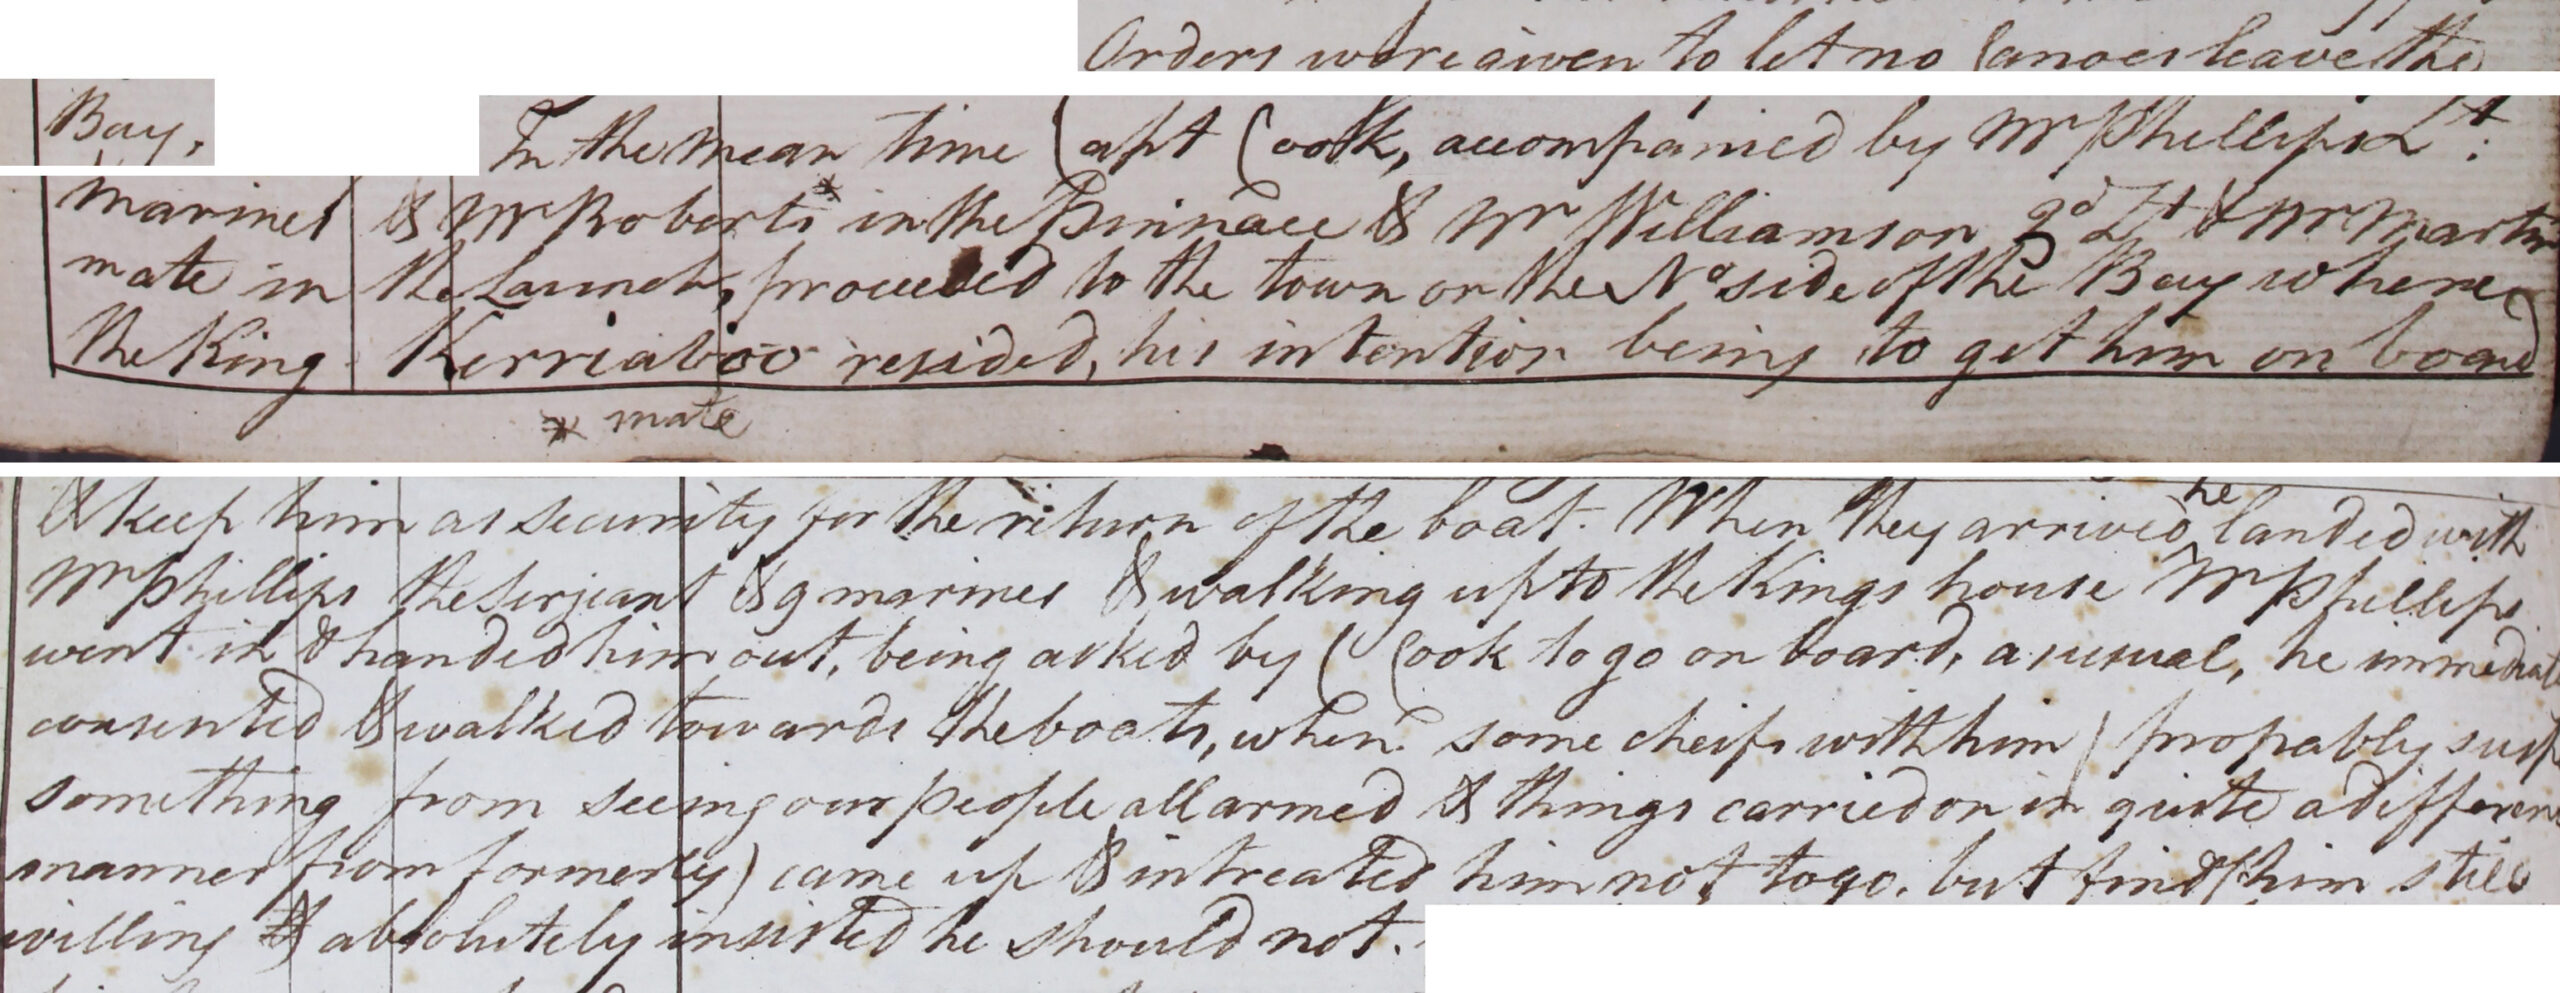 Orders were given to let no Canoes leave the
Bay,
In the mean time Capt Cook, accompanied by Mr Phillips Lt:
marines & Mr Roberts* in the Pinnace & Mr Williamson 2d Lt & Mr Martin
mate in the Launch, proceeded to the town on the No side of the Bay where
the King Kerriaboo resided, his intention being to get him on board
* mate
& keep him as security for the return of the boat. When they arrived he landed with
Mr Phillips the Serjeant & 9 marines & walking up to the Kings house Mr Phillips
went in & handed him out, being asked by C Cook to go on board, as usual, he immediate
consented & walked towards the boats, when some cheifs with him (propably susp
something from seeing our people all armed & things carried on in quite a different
manner from formerly) came up & intreated him not to go, but findg him still
willing & absolutely insisted he should not.